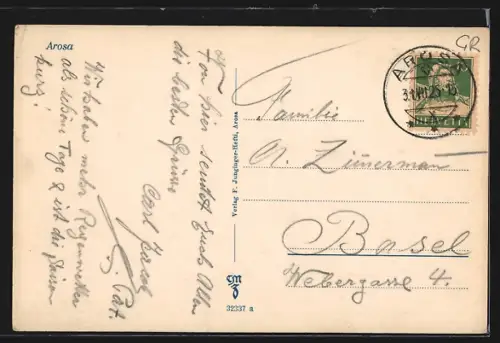 Arosa
Von hier sendet Euch Allen
die besten Grüsse
Carl
Wir haben mehr Regenwetter
als schöne Tage & ist die Saison
kurz!
Verlag F. Junginger-Hefti, Arosa
32337 a
GR
AROSA
31.VII.25.-15
HELVETIA
Familie
A. Zimmerman
Basel
Webergasse 4.